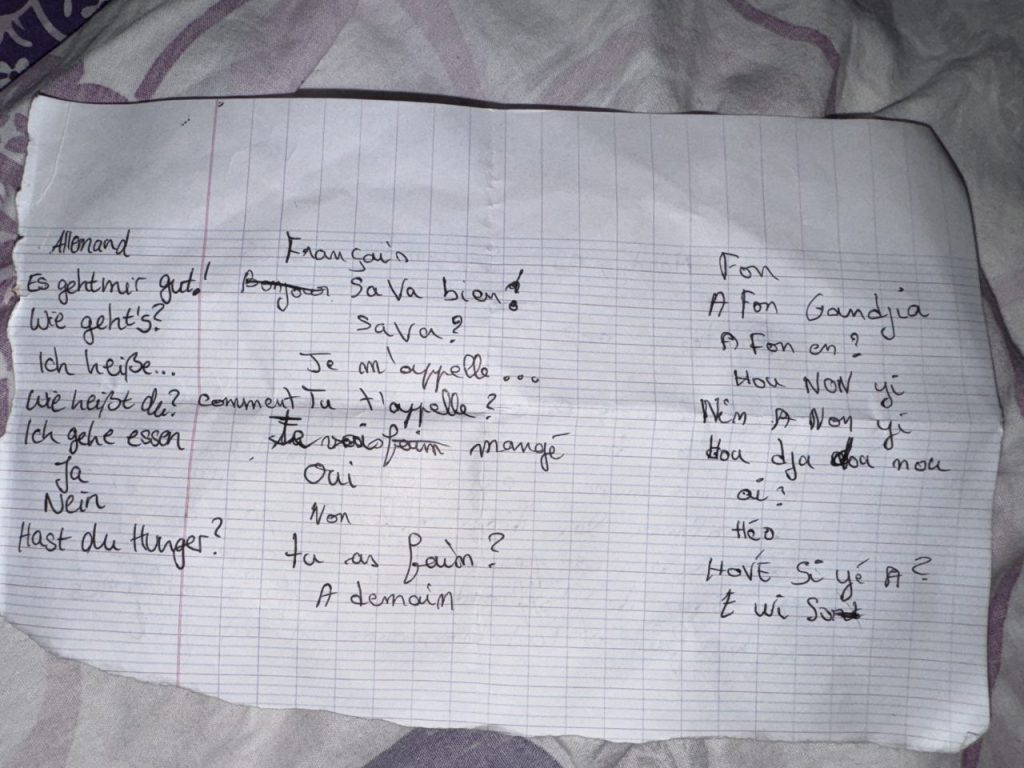 Allemand Français Fon
Es geht mir gut! Bonjour Sa Va bien! A Fon Gandjia
Wie geht's? Sa Va? A Fon en?
Ich heiße... Je m'appelle... Hou NON yi
Wie heißt du? comment Tu t'appelle? Nin A Non yi
Ich gehe essen Je vais faim mangé Hou dja dou nou
Ja Oui ai?
Nein Non Héo
Hast du Hunger? tu as faim? HOVÉ Si yé A?
A demain E wi So